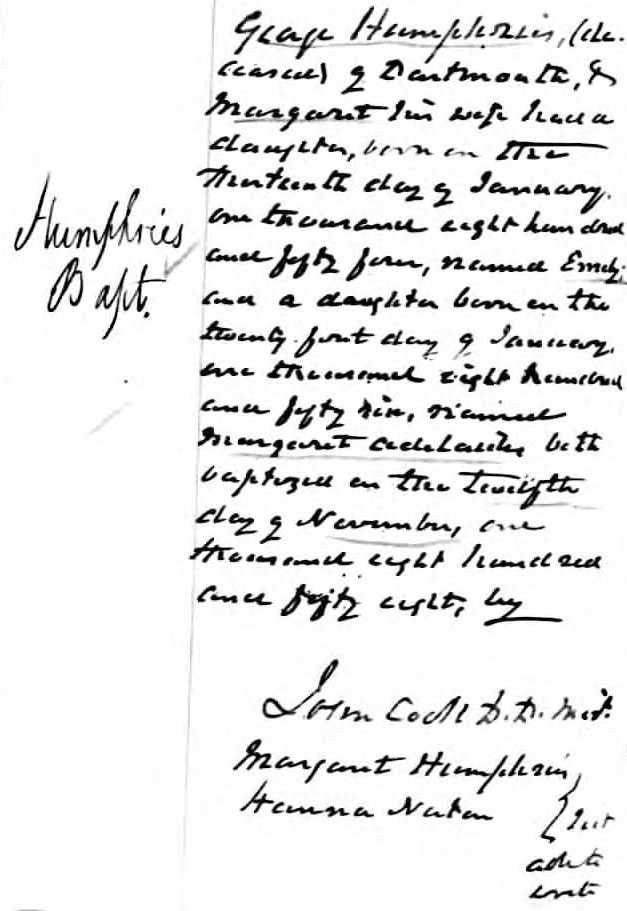 Humphries
Bapt.
George Humphries, (de-
ceased) of Dartmouth, &
Margaret his wife had a
daughter, born on the
thirteenth day of January,
one thousand eight hundred
and fifty four, named Emily;
and a daughter born on the
twenty first day of January,
one thousand eight hundred
and fifty six, named
Margaret Adelaide, both
baptized on the twelfth
day of November, one
thousand eight hundred
and fifty eight, by
John Cook D.D. Mist.
Margaret Humphries,
Hanna